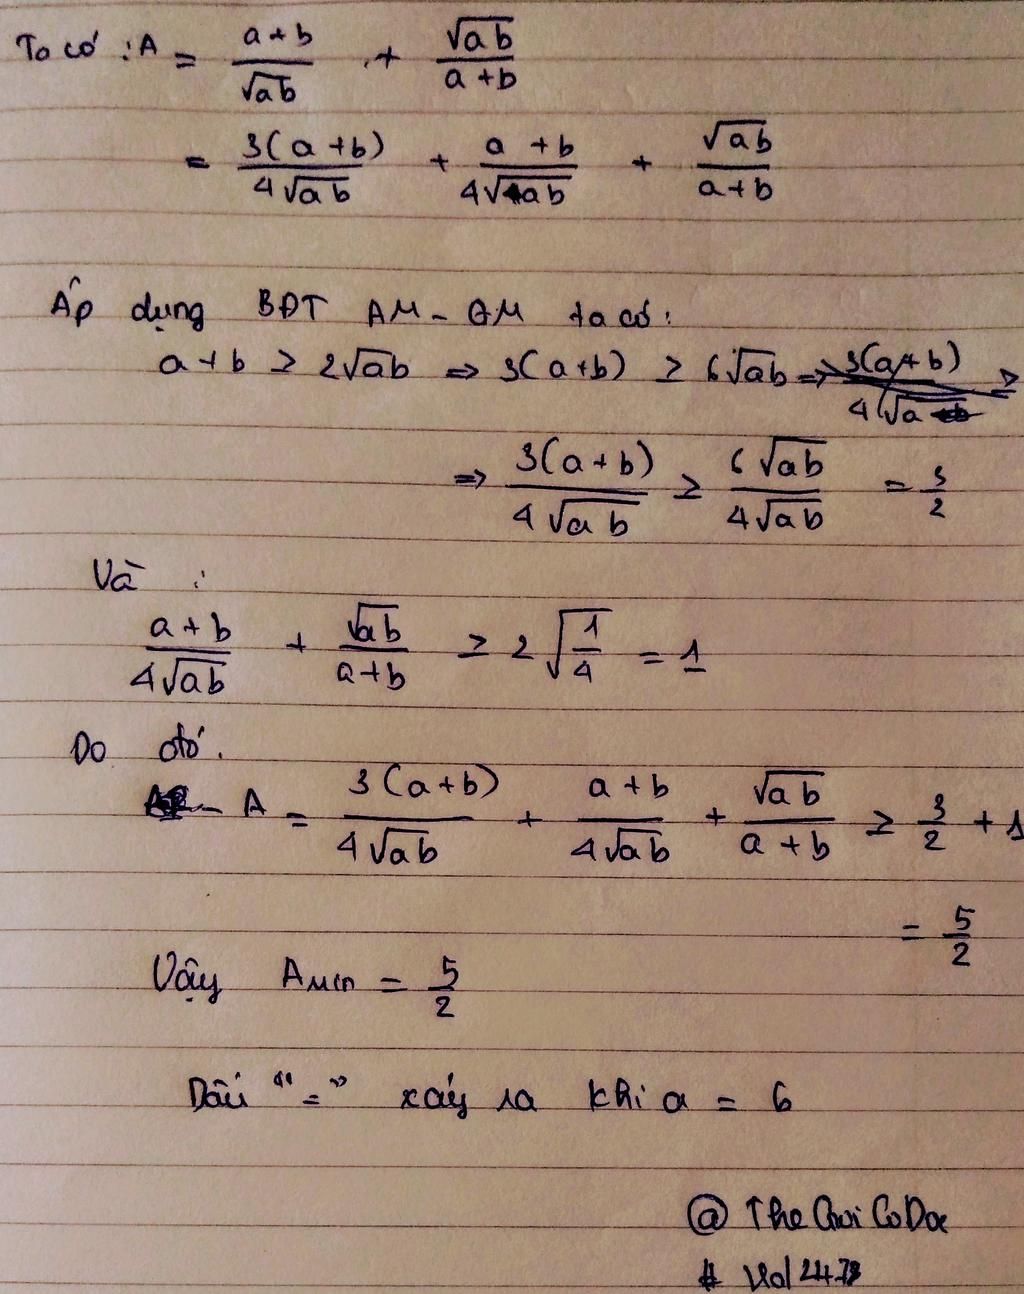 Ta có : A = \frac{a+b}{\sqrt{ab}} + \frac{\sqrt{ab}}{a+b}
= \frac{3(a+b)}{4\sqrt{ab}} + \frac{a+b}{4\sqrt{ab}} + \frac{\sqrt{ab}}{a+b}
Áp dụng BĐT AM - GM ta có :
a + b ≥ 2\sqrt{ab} => 3(a+b) ≥ 6\sqrt{ab}
=> \frac{3(a+b)}{4\sqrt{ab}} ≥ \frac{6\sqrt{ab}}{4\sqrt{ab}} = \frac{3}{2}
Và :
\frac{a+b}{4\sqrt{ab}} + \frac{\sqrt{ab}}{a+b} ≥ 2\sqrt{\frac{1}{4}} = 1
Do đó.
A = \frac{3(a+b)}{4\sqrt{ab}} + \frac{a+b}{4\sqrt{ab}} + \frac{\sqrt{ab}}{a+b} ≥ \frac{3}{2} + 1
= \frac{5}{2}
Vậy A_{min} = \frac{5}{2}
Dấu "=" xảy ra khi a = b